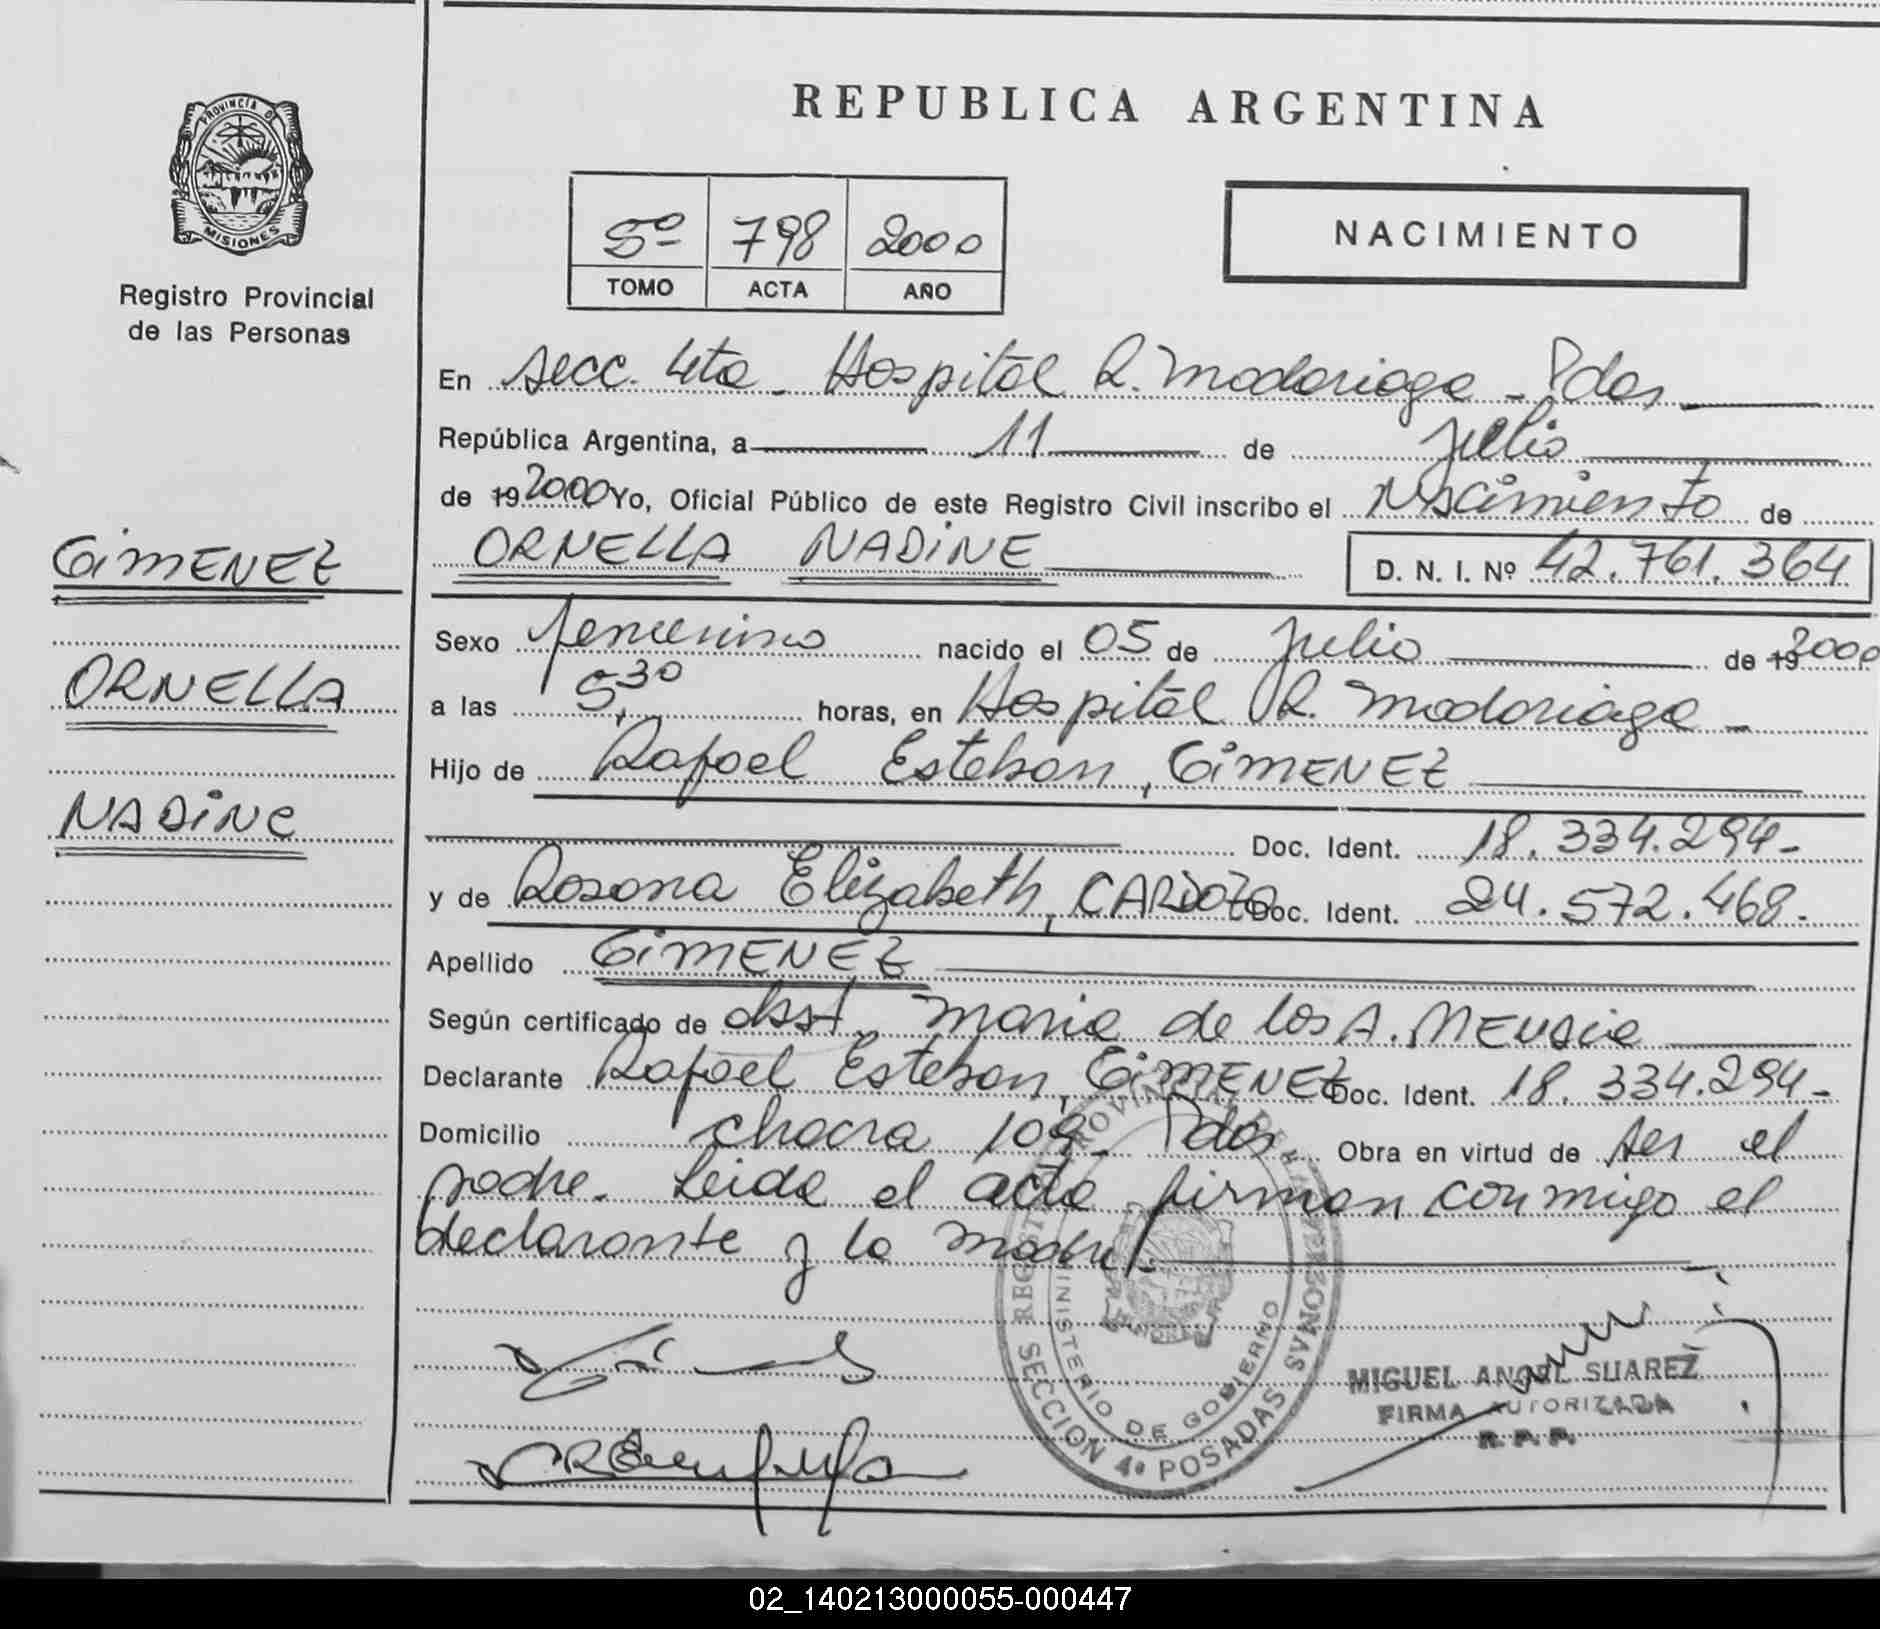 PROVINCIA DE
MISIONES
Registro Provincial
de las Personas
GIMENEZ
ORNELLA
NADINE
REPUBLICA ARGENTINA
5º 798 2000
TOMO ACTA AÑO
NACIMIENTO
En secc. 4ta - Hospital R. Madariaga - Pdas
República Argentina, a 11 de Julio
de 19 2000 Yo, Oficial Público de este Registro Civil inscribo el Nacimiento de
ORNELLA NADINE D. N. I. Nº 42.761.364
Sexo femenino nacido el 05 de Julio de 19 2000
a las 5,30 horas, en Hospital R. Madariaga -
Hijo de Rafael Esteban, GIMENEZ
Doc. Ident. 18.334.294-
y de Rosana Elizabeth, CARDOZO Doc. Ident. 24.572.468-
Apellido GIMENEZ
Según certificado de obst. Maria de los A.
Declarante Rafael Esteban, GIMENEZ Doc. Ident. 18.334.294-
Domicilio chacra 109- Pdas Obra en virtud de ser el
padre. Leida el acta firman conmigo el
declarante y la madre.-
MINISTERIO DE GOBIERNO
SECCION 4ª POSADAS
MIGUEL ANGEL SUAREZ
FIRMA AUTORIZADA
R. P. P.
02_140213000055-000447